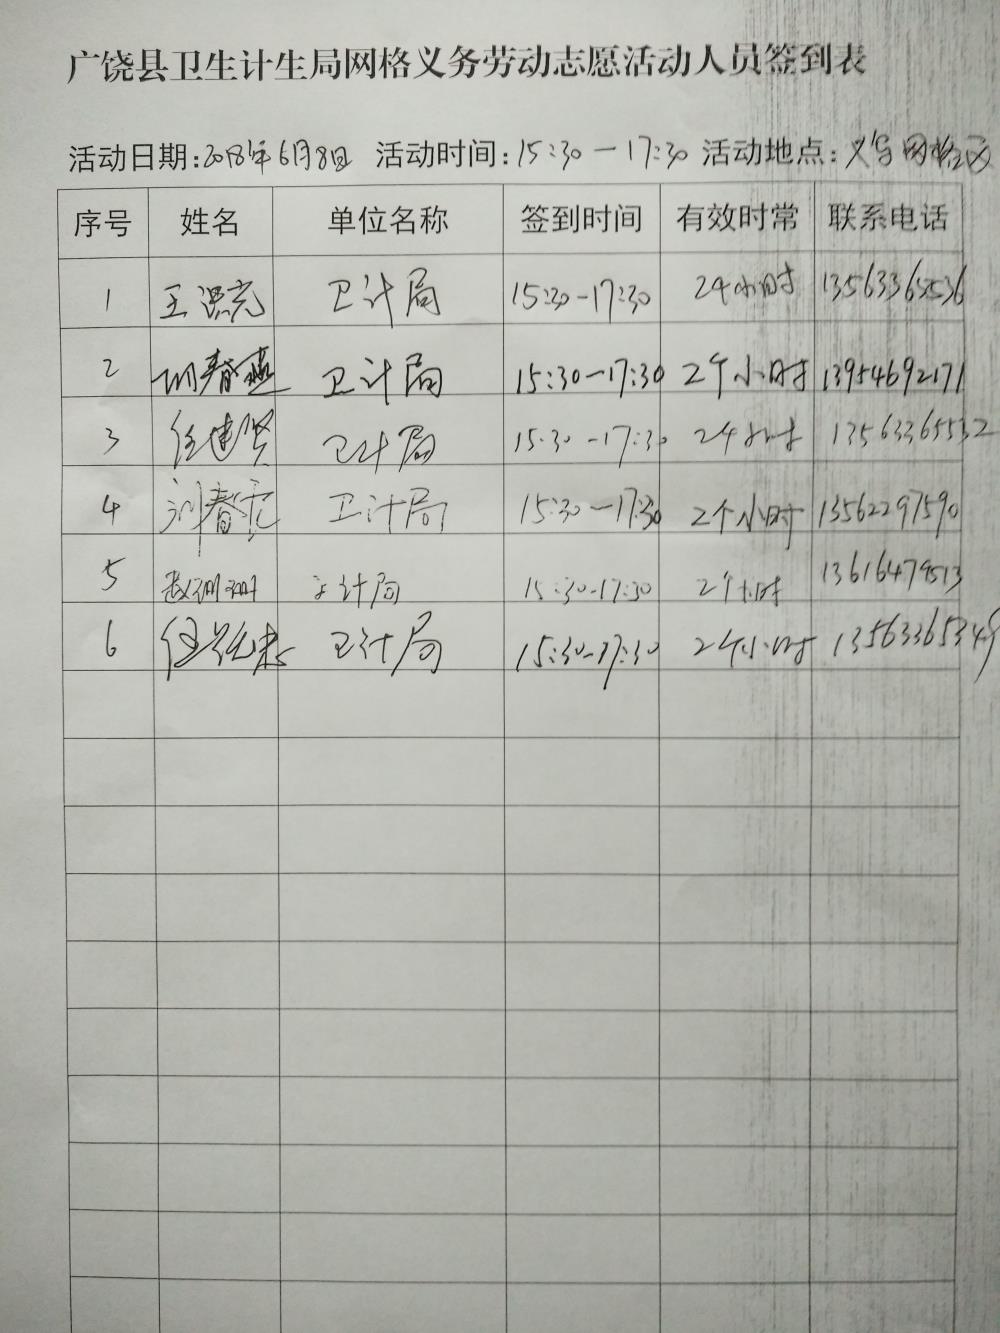 广饶县卫生计生局网格义务劳动志愿活动人员签到表
活动日期:2018年6月8日 活动时间:15:30—17:30 活动地点:网格区
序号 姓名 单位名称 签到时间 有效时常 联系电话
1 王洪亮 卫计局 15:30-17:30 2个小时 13563365536
2 胡春燕 卫计局 15:30-17:30 2个小时 13954692171
3 任建贤 卫计局 15:30-17:30 2个小时 13563365532
4 刘春霞 卫计局 15:30-17:30 2个小时 13562297590
5 卫计局 15:30-17:30 2个小时
6 卫计局 15:30-17:30 2个小时 13563365349